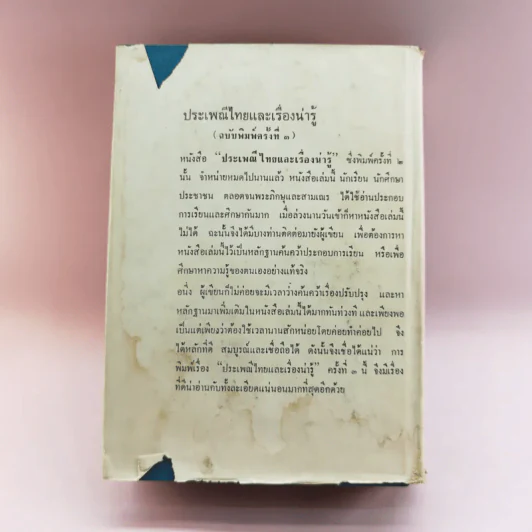 ประเพณีไทยและเรื่องน่ารู้
(ฉบับพิมพ์ครั้งที่ ๓)
หนังสือ “ประเพณีไทยและเรื่องน่ารู้” ซึ่งพิมพ์ครั้งที่ ๒
นั้น จำหน่ายหมดไปนานแล้ว หนังสือเล่มนี้ นักเรียน นักศึกษา
ประชาชน ตลอดจนพระภิกษุและสามเณร ได้ใช้อ่านประกอบ
การเรียนและศึกษากันมาก เมื่อล่วงนานวันเข้าก็หาหนังสือเล่มนี้
ไม่ได้ ฉะนั้นจึงได้มีบางท่านติดต่อมายังผู้เขียน เพื่อต้องการหา
หนังสือเล่มนี้ไว้เป็นหลักฐานค้นคว้าประกอบการเรียน หรือเพื่อ
ศึกษาหาความรู้ของตนเองอย่างแท้จริง
อนึ่ง ผู้เขียนก็ไม่ค่อยจะมีเวลาว่างค้นคว้าเรื่องปรับปรุง และหา
หลักฐานมาเพิ่มเติมในหนังสือเล่มนี้ได้มากทันท่วงที และเพียงพอ
เป็นแต่เพียงว่าต้องใช้เวลานานสักหน่อยโดยค่อยทำค่อยไป จึง
ได้หลักที่ดี สมบูรณ์และเชื่อถือได้ ดังนั้นจึงเชื่อได้แน่ว่า การ
พิมพ์เรื่อง “ประเพณีไทยและเรื่องน่ารู้” ครั้งที่ ๓ นี้ จึงมีเรื่อง
ที่ดีน่าอ่านทั้งละเอียดแน่นอนมากที่สุดอีกด้วย